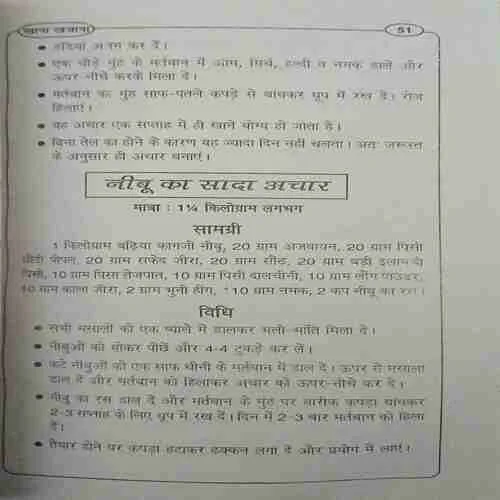 खाना खजाना
51
डंडियां अलग कर दें।
एक चौड़े मुंह के मर्तबान में आम, मिर्च, हल्दी व नमक डालें और
ऊपर-नीचे करके मिला दें।
मर्तबान का मुंह साफ-पतले कपड़े से बांधकर धूप में रख दें। रोज
हिलाएं।
यह अचार एक सप्ताह में ही खाने योग्य हो जाता है।
बिना तेल का होने के कारण यह ज्यादा दिन नहीं चलता। अतः जरूरत
के अनुसार ही अचार बनाएं।
नीबू का सादा अचार
मात्रा : 1¼ किलोग्राम लगभग
सामग्री
1 किलोग्राम बढ़िया कागजी नीबू, 20 ग्राम अजवायन, 20 ग्राम पिसी
छोटी पीपल, 20 ग्राम सफेद जीरा, 20 ग्राम सौंठ, 20 ग्राम बड़ी इलायची
पिसी, 10 ग्राम पिसा तेजपात, 10 ग्राम पिसी दालचीनी, 10 ग्राम लौंग पाउडर,
10 ग्राम काला जीरा, 2 ग्राम भुनी हींग, 110 ग्राम नमक, 2 कप नीबू का रस।
विधि
सभी मसालों को एक प्याले में डालकर भली-भांति मिला दें।
नीबुओं को धोकर पोंछें और 4-4 टुकड़े कर लें।
कटे नीबुओं को एक साफ चीनी के मर्तबान में डाल दें। ऊपर से मसाला
डाल दें और मर्तबान को हिलाकर अचार को ऊपर-नीचे कर दें।
नीबू का रस डाल दें और मर्तबान के मुंह पर बारीक कपड़ा बांधकर
2-3 सप्ताह के लिए धूप में रख दें। दिन में 2-3 बार मर्तबान को हिला
दें।
तैयार होने पर कपड़ा हटाकर ढक्कन लगा दें और प्रयोग में लाएं।